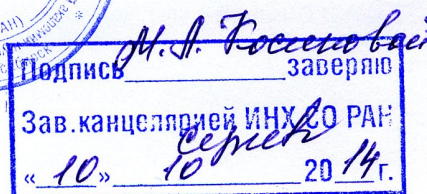 М. А. Косиновой
Подпись заверяю
Зав. канцелярией ИНХ СО РАН
«10» 10 2014 г.